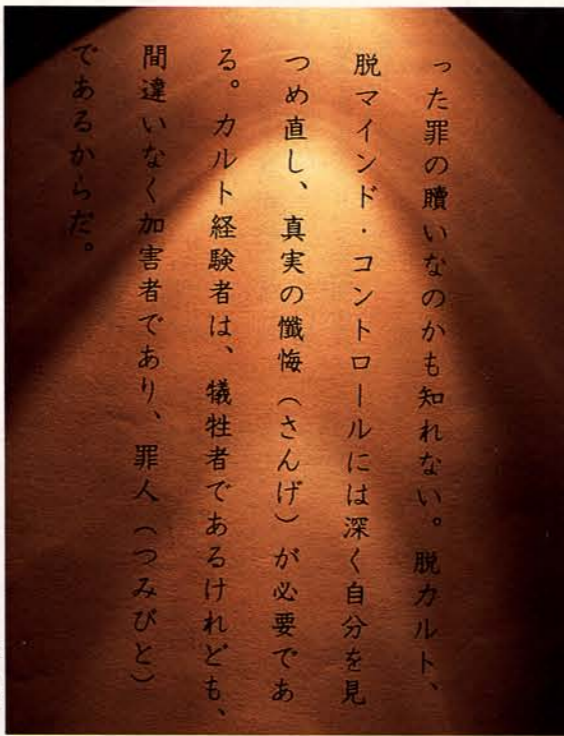 った罪の贖いなのかも知れない。脱カルト、
脱マインド・コントロールには深く自分を見
つめ直し、真実の懺悔（さんげ）が必要であ
る。カルト経験者は、犠牲者であるけれども、
間違いなく加害者であり、罪人（つみびと）
であるからだ。